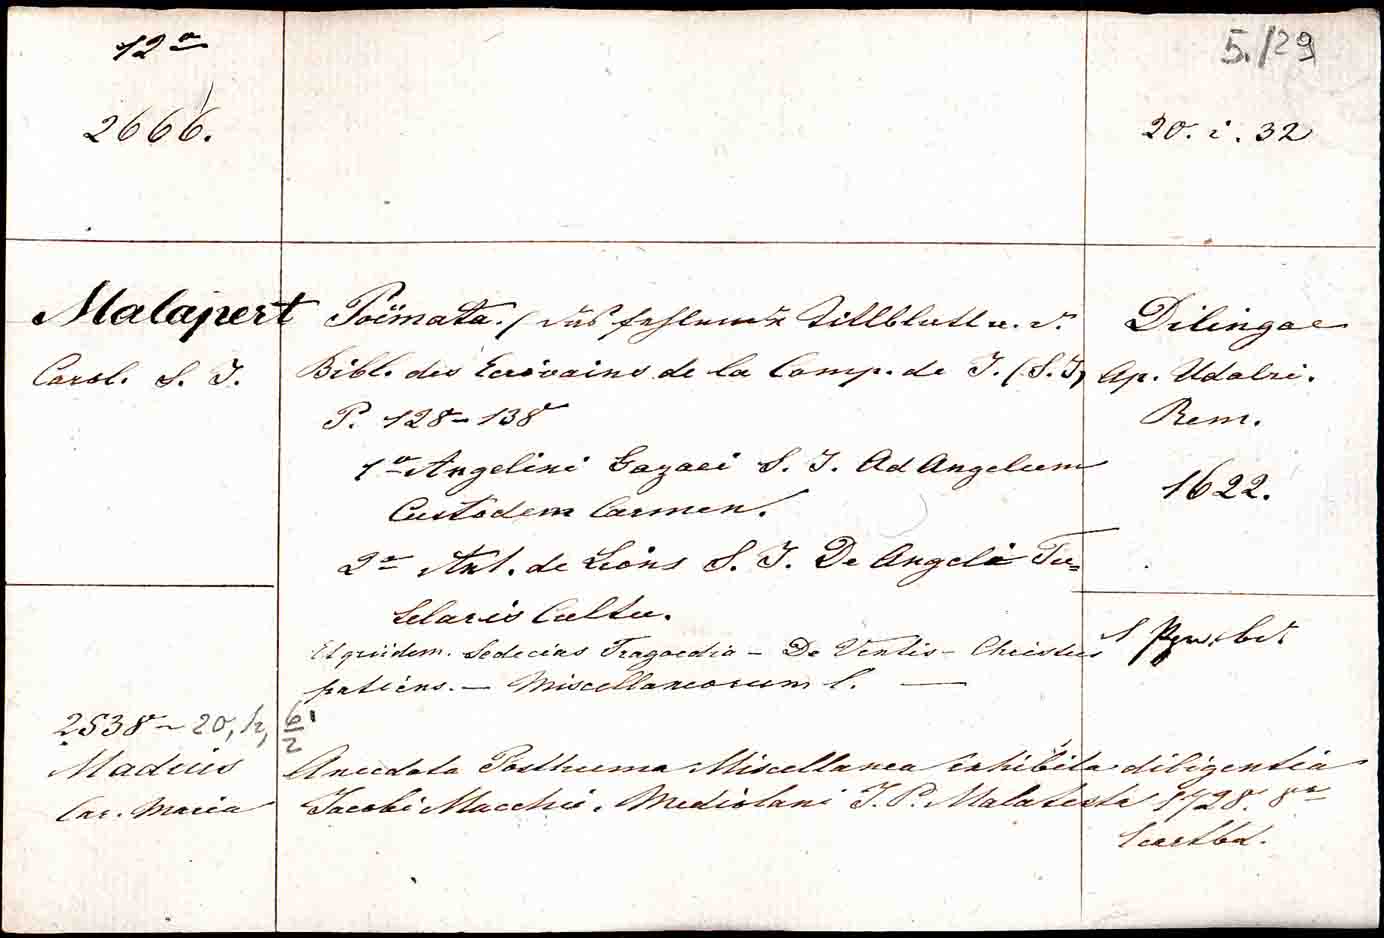 12°
5./29
2666.
20. i. 32
Malapert
Carol. S. J.
Poëmata. / das fehlende Titlblatt u. v.
Bibl. des Ecrivains de la Comp. de J. (S. J)
P. 128 – 138
1° Angelini Gazaei S. J. Ad Angelum
Custodem Carmen.
2° Ant. de Lions S. J. De Angeli Tu=
telaris Cultu.
Ejusdem. Sedecias Tragoedia – De Ventis – Christus
patiens. — Miscellaneorum l. —
Dilingae
Ap. Udalri.
Rem.
1622.
1 bd.
2538 – 20, h, 6/2
Madius
Car. Maria
Anecdota Posthuma Miscellanea exhibita diligentia
Jacobi Macchii. Mediolani J. P. Malatesta 1728. 8°
1 cartbd.